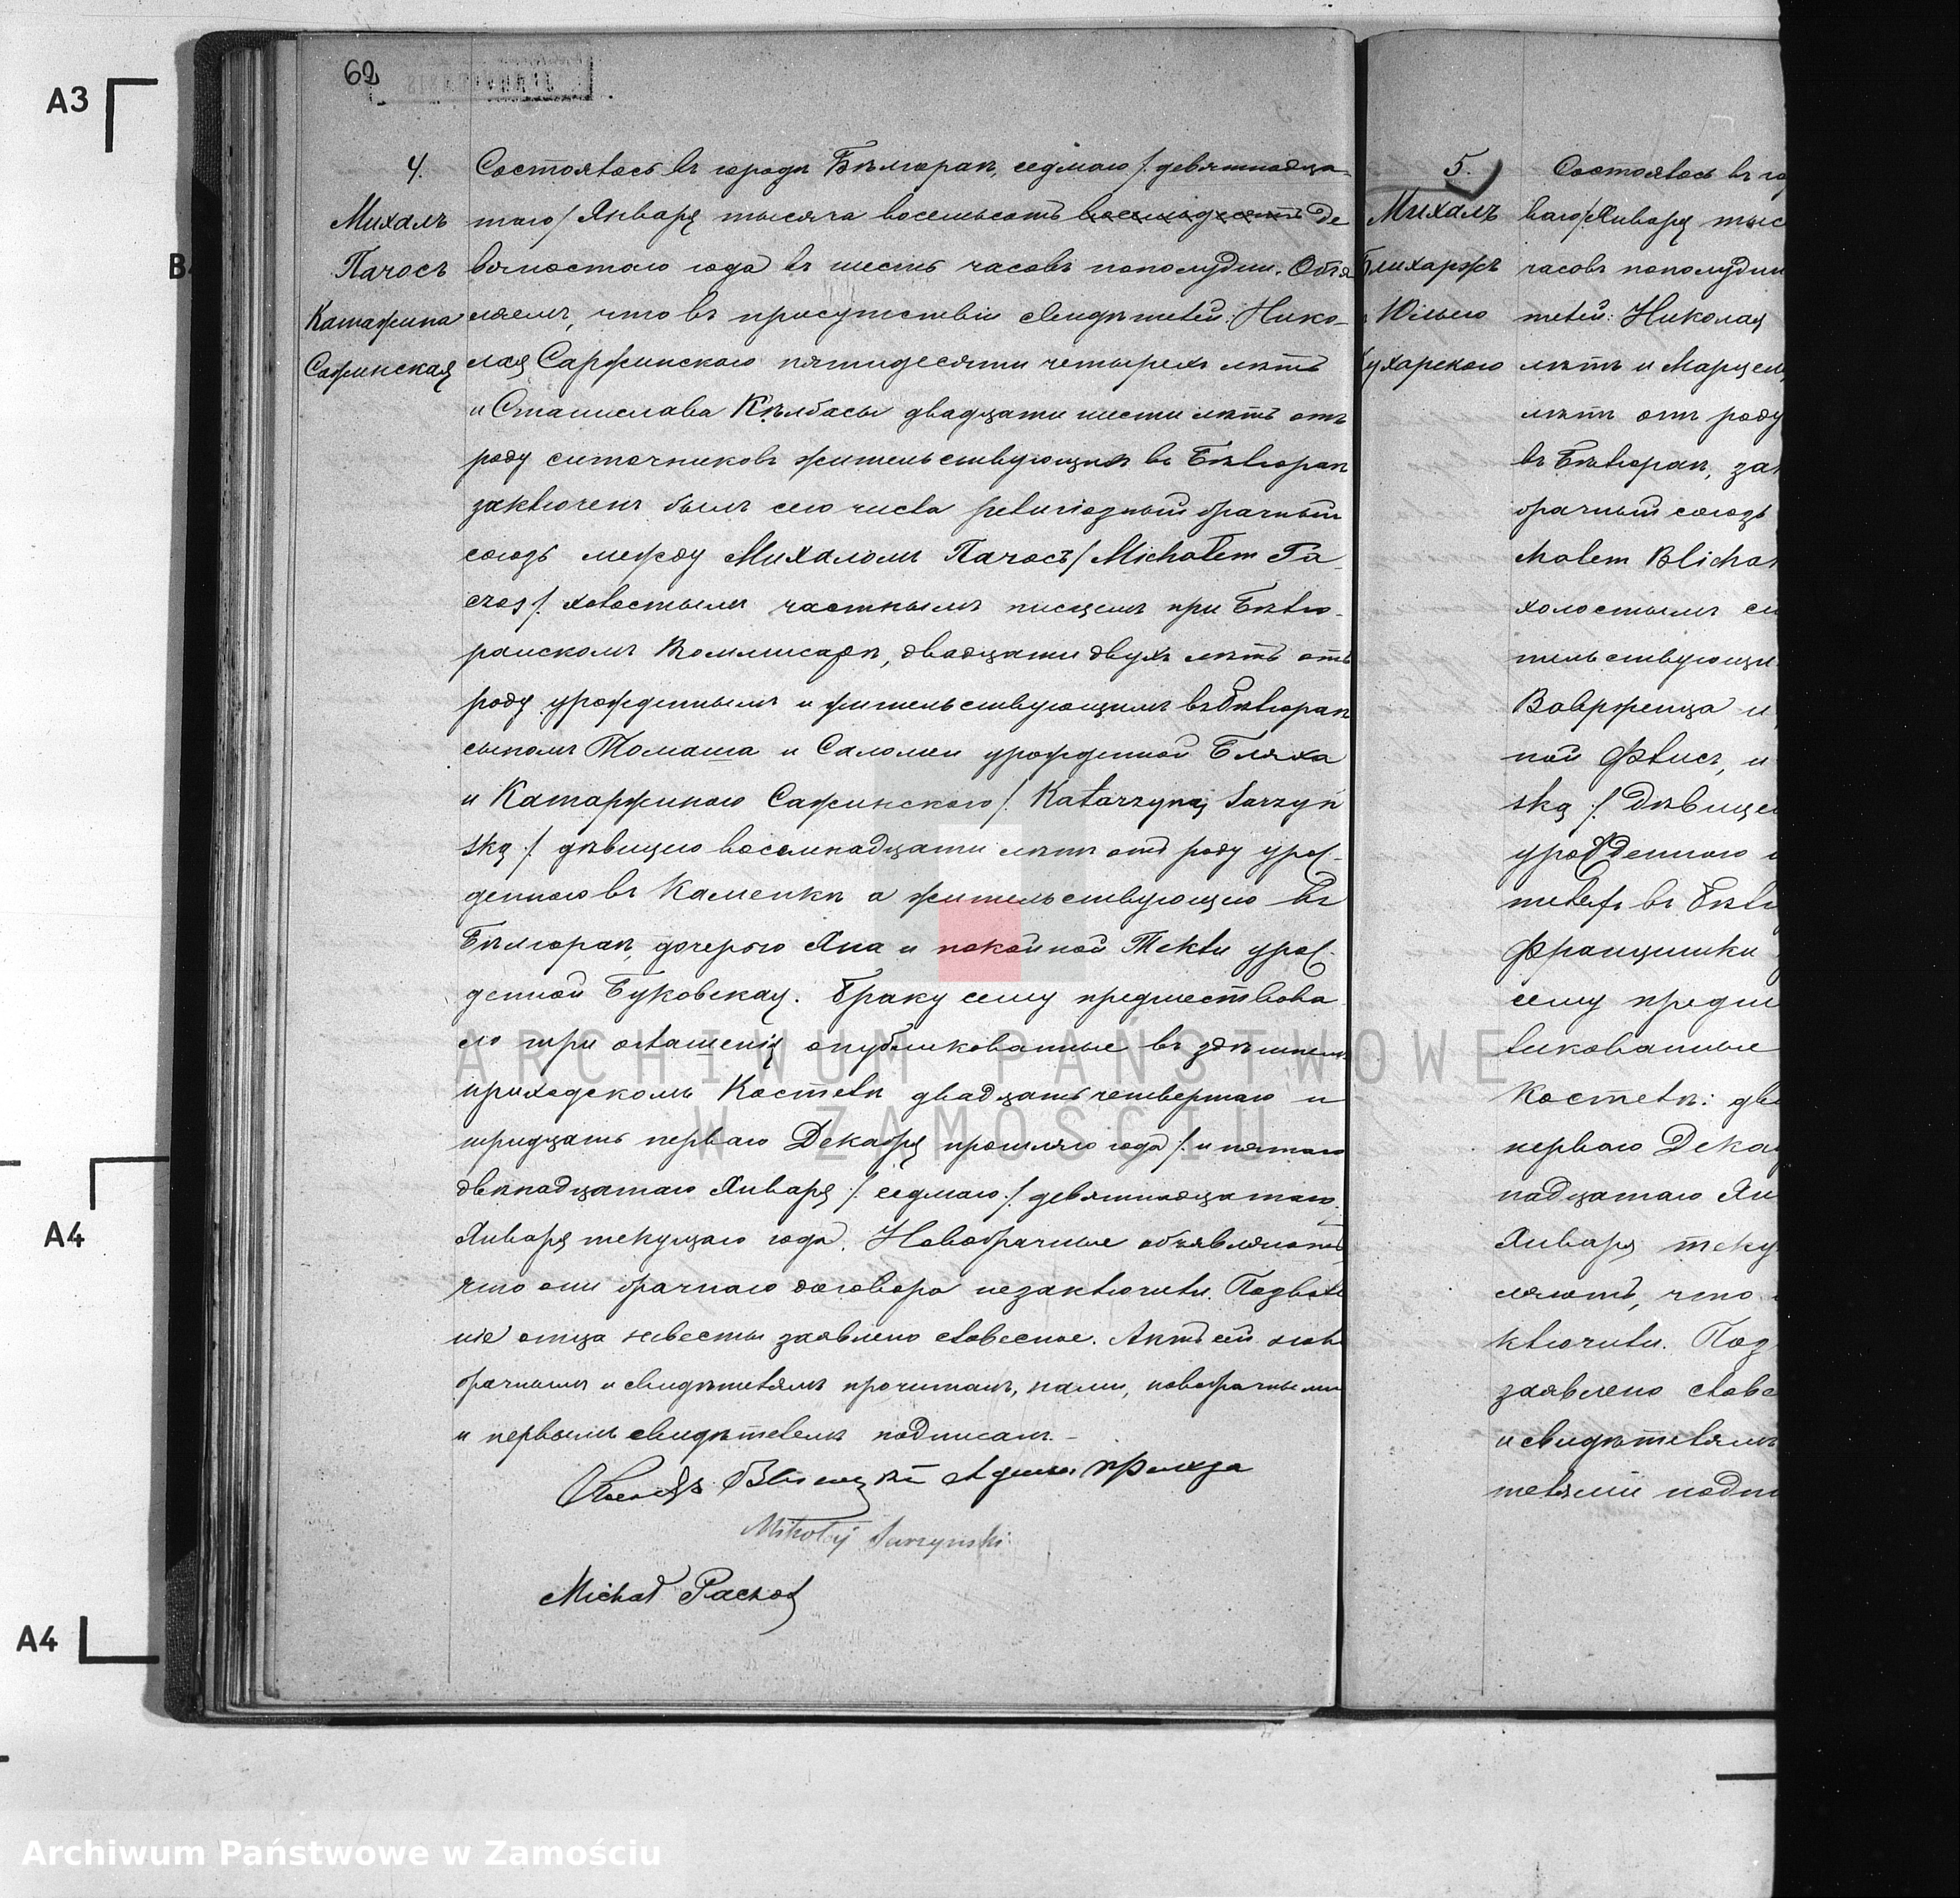 62
4.
Михалъ
Пачосъ
Катажина
Сажинская
Состоялось въ городѣ Бѣлгораѣ, седмаго /девятнадца-
таго/ Января тысяча восемьсотъ восемьдесятъ де
вяностаго года въ шесть часовъ пополудни. Объя
вляемъ, что въ присутствіи свидѣтелей: Нико-
лая Саржинскаго пятидесяти четырехъ лѣтъ
и Станислава Кѣлбасы двадцати шести лѣтъ отъ
роду ситочниковъ жительствующихъ въ Бѣлгораѣ
заключенъ былъ сего числа религіозный брачный
союзъ между Михаломъ Пачосъ /Michałem Pa
czos/. холостымъ частнымъ писцемъ при Бѣлго-
райскомъ Коммисарѣ, двадцати двухъ лѣтъ отъ
роду урожденнымъ и жительствующимъ въ Бѣлгораѣ
сыномъ Томаша и Саломеи урожденной Бляха
и Катаржиною Сажинскою /. Katarzyną Sarzyń
ską ./ дѣвицею восемнадцати лѣтъ отъ роду урож-
денною въ Каменкѣ а жительствующею въ
Бѣлгораѣ, дочерью Яна и покойной Текли урож-
денной Буковская. Браку сему предшествова
ло три оглашенія опубликованные въ здѣшнемъ
приходскомъ Костелѣ двадцать четвертаго и
тридцать перваго Декабря прошлаго года /. и пятаго
двѣнадцатаго Января ./ седмаго ./ девятнадцатаго
Января текущаго года. Новобрачные объявляютъ
что они брачнаго договора незаключили. Позволе
ніе отца невесты заявлено словесное. Актъ сей ново
брачнымъ и свидѣтелямъ прочитанъ, нами, новобрачными
и первымъ свидѣтелемъ подписанъ.-
Mikołaj Sarzynski
Michał Paczos
5.
Михалъ
Блихаржъ
Юлью
Состоялось въ го
ваго/Января тыс
часовъ пополудни
телей: Николая
лѣтъ и Марцел
лѣтъ отъ роду
въ Бѣлгораѣ, за
брачный союзъ
chałem Blichar
холостымъ си
тельствующи
Вавржеица и
ной Флисъ, и
ską ./ Дѣвицею
урожденною
въ Бѣлг
Францишки
сему предш
ликованные
Костелѣ: два
перваго Дека
надцатаго Ян
Января теку
ляютъ, что
ключили. Поз
заявлено слове
и свидѣтелямъ
телями подпи
A3
B4
A4
A4
ARCHIWUM PAŃSTWOWE
W ZAMOŚCIU
Archiwum Państwowe w Zamościu